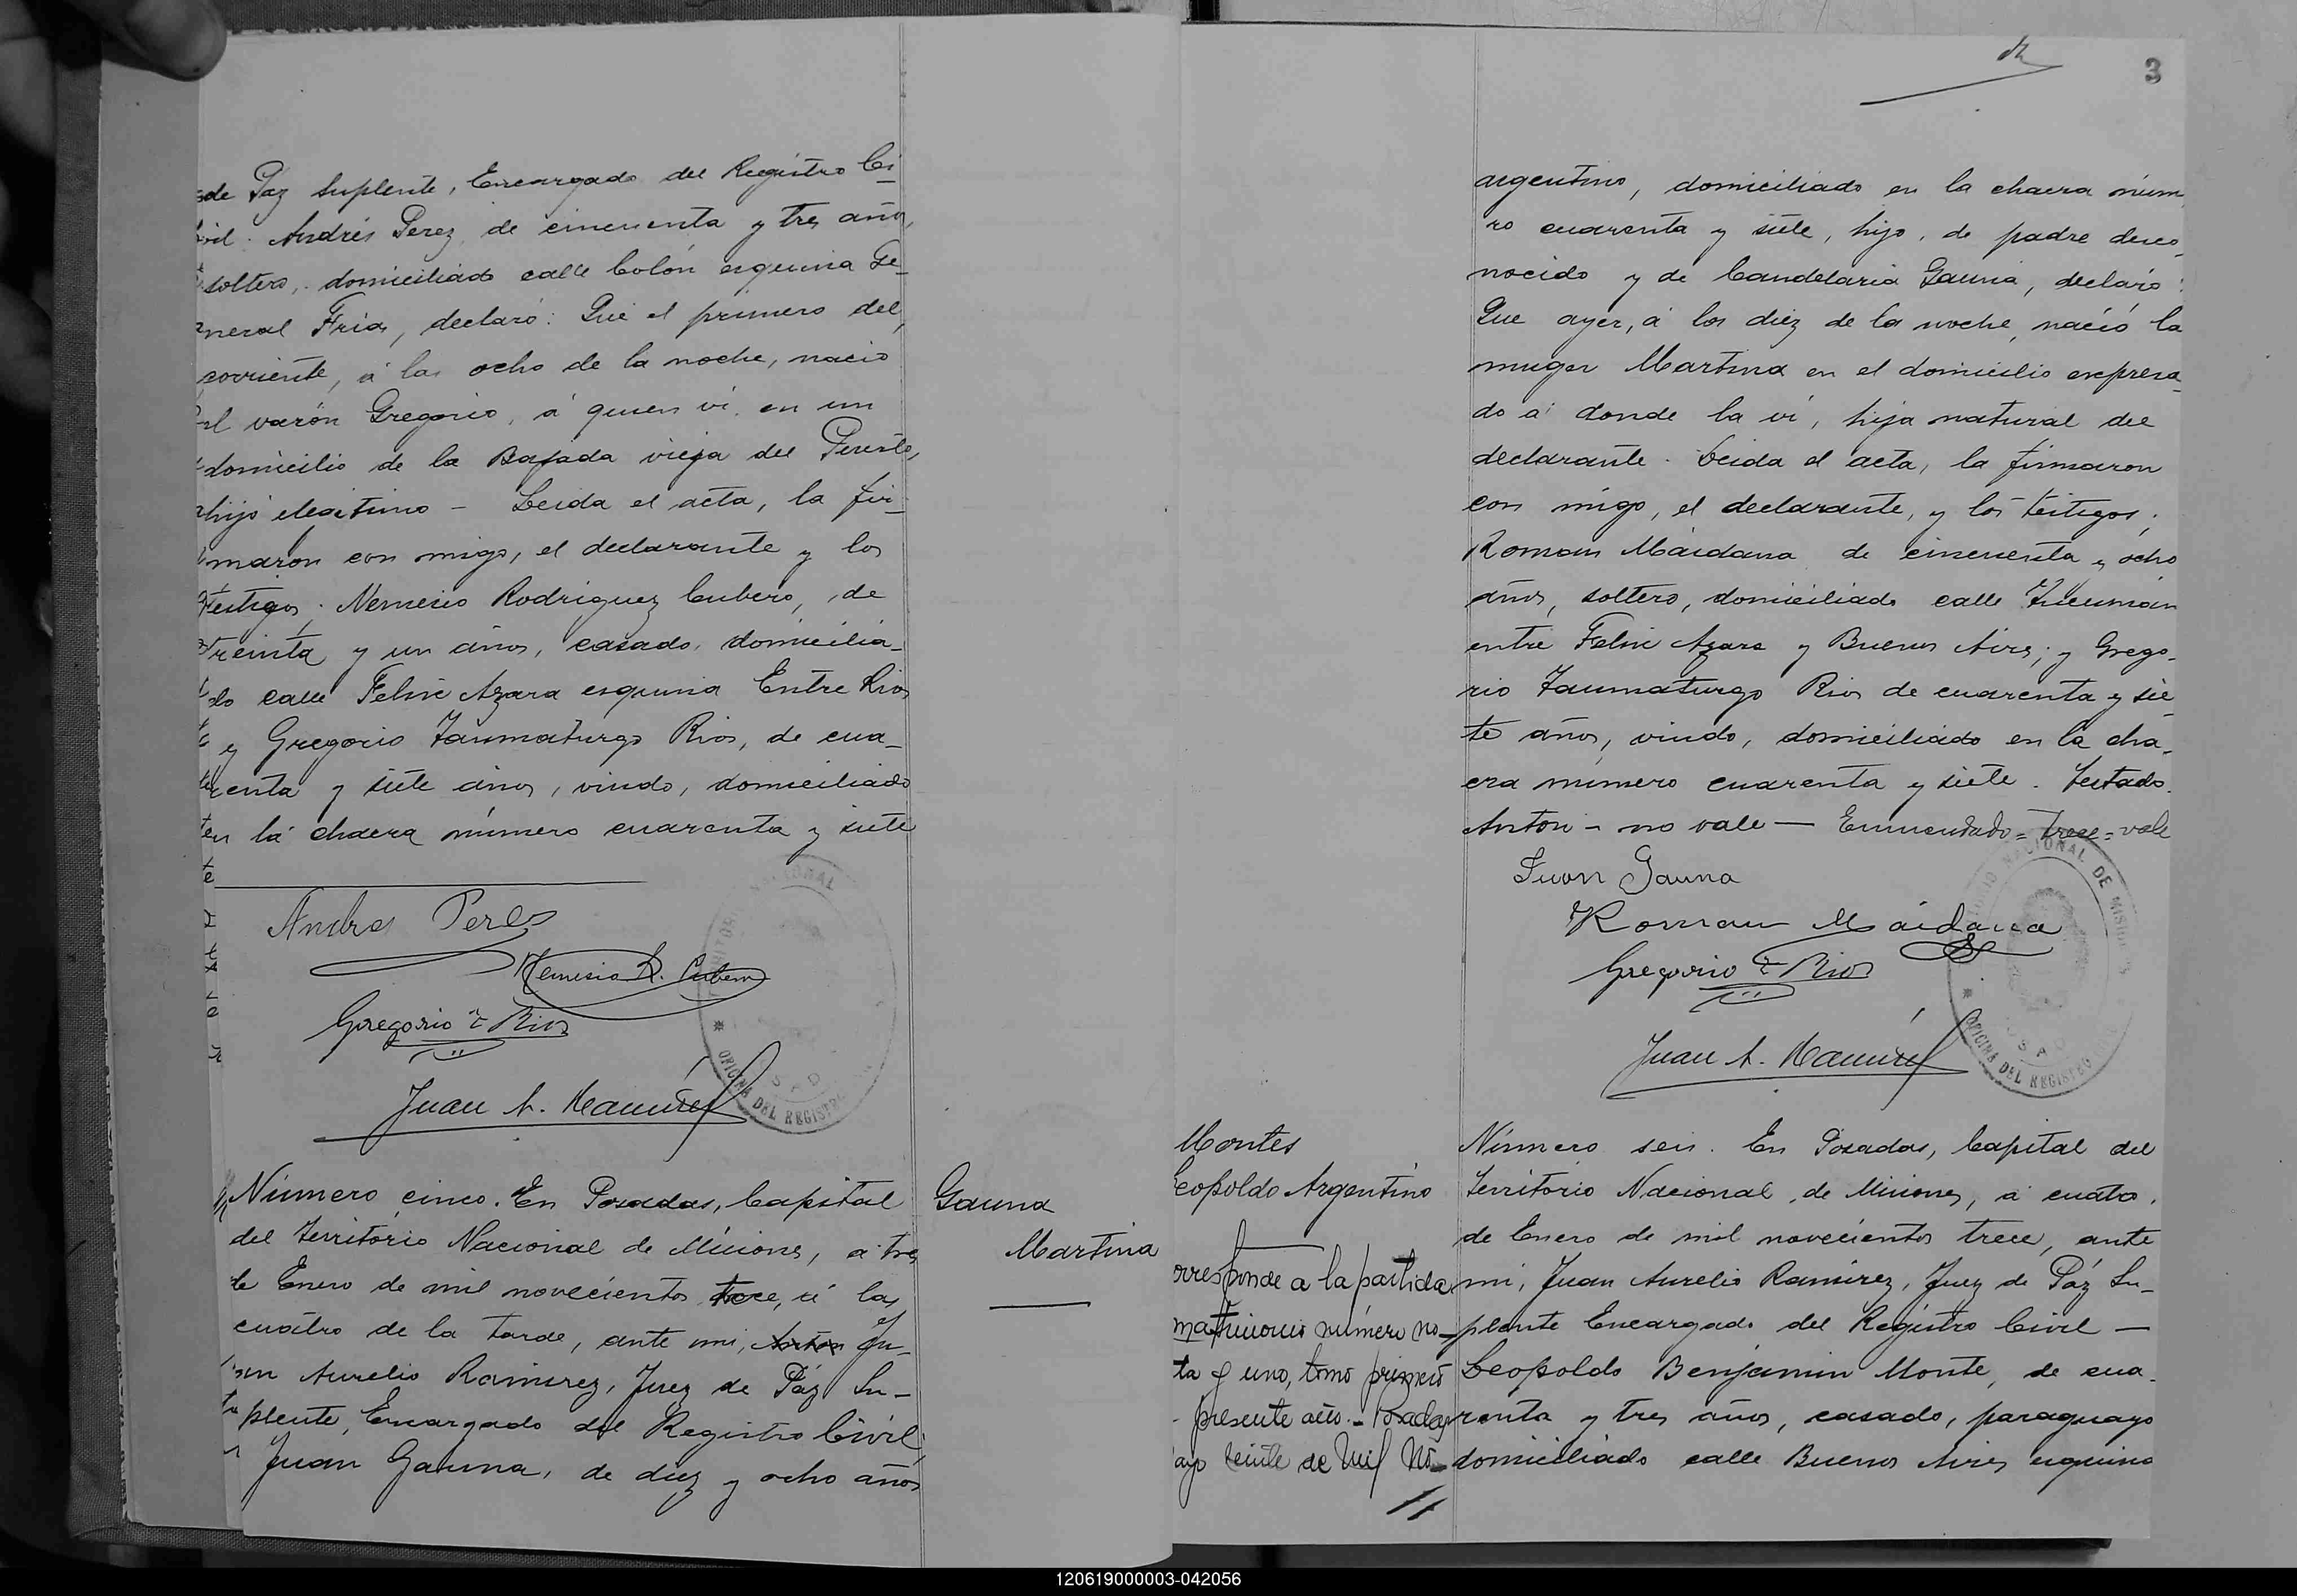 de Paz Suplente, Encargado del Registro Ci-
vil. Andrés Perez, de cincuenta y tres años,
soltero, domiciliado calle Colón esquina Ge-
neral Frias, declaró: Que el primero del
corriente, á las ocho de la noche, nació
el varón Gregorio, á quien ví en un
domicilio de la Bajada vieja del Puerto,
hijo ilegitimo - Leida el acta, la fir-
maron con migo, el declarante y los
testigos; Nemesio Rodriguez Cubero, de
treinta y un años, casado, domicilia-
do calle Felix Azara esquina Entre Rios
y Gregorio Taumaturgo Rios, de cua-
renta y siete años, viudo, domiciliado
en la chacra número cuarenta y siete
Andres Peres
Nemesio R. Cubero
Gregorio T Rios
Juan A. Ramirez
OFICINA DEL REGISTRO
Número cinco. En Posadas, Capital
del Territorio Nacional de Misiones, a tres
de Enero de mil novecientos trece, á las
cuatro de la tarde, ante mi, Anton Ju-
an Aurelio Ramirez, Juez de Páz Su-
plente, Encargado del Registro Civil,
Juan Gauna, de diez y ocho años
Gauna
Martina
3
argentino, domiciliado en la chacra núme
ro cuarenta y siete, hijo, de padre desco-
nocido y de Candelaria Gauna, declaró:
Que ayer, á los diez de la noche, nació la
muger Martina en el domicilio expresa-
do a donde la ví, hija natural del
declarante. Leida el acta, la firmaron
con migo, el declarante, y los testigos;
Roman Maidana de cincuenta y ocho
años, soltero, domiciliado calle Tucumán
entre Felix Azara y Buenos Aires; y Grego-
rio Taumaturgo Rios de cuarenta y sie
te años, viudo, domiciliado en la cha-
cra número cuarenta y siete. Testado.
Anton - no vale - Enmendado = trece = vale
Juan Gauna
Roman Maidana
Gregorio T Rios
Juan A. Ramirez
NACIONAL DE MISIONES
OFICINA DEL REGISTRO
Montes
Leopoldo Argentino
orresponde a la partida
matrimonio número no-
ta y uno, tomo primero
presente año. - Posadas
ayo veinte de mil no-
Número seis. En Posadas, Capital del
Territorio Nacional de Misiones, á cuatro
de Enero de mil novecientos trece, ante
mi, Juan Aurelio Ramirez, Juez de Páz Su-
plente Encargado del Registro Civil -
Leopoldo Benjamin Monte, de cua-
renta y tres años, casado, paraguayo
domiciliado calle Buenos Aires esquina
120619000003-042056